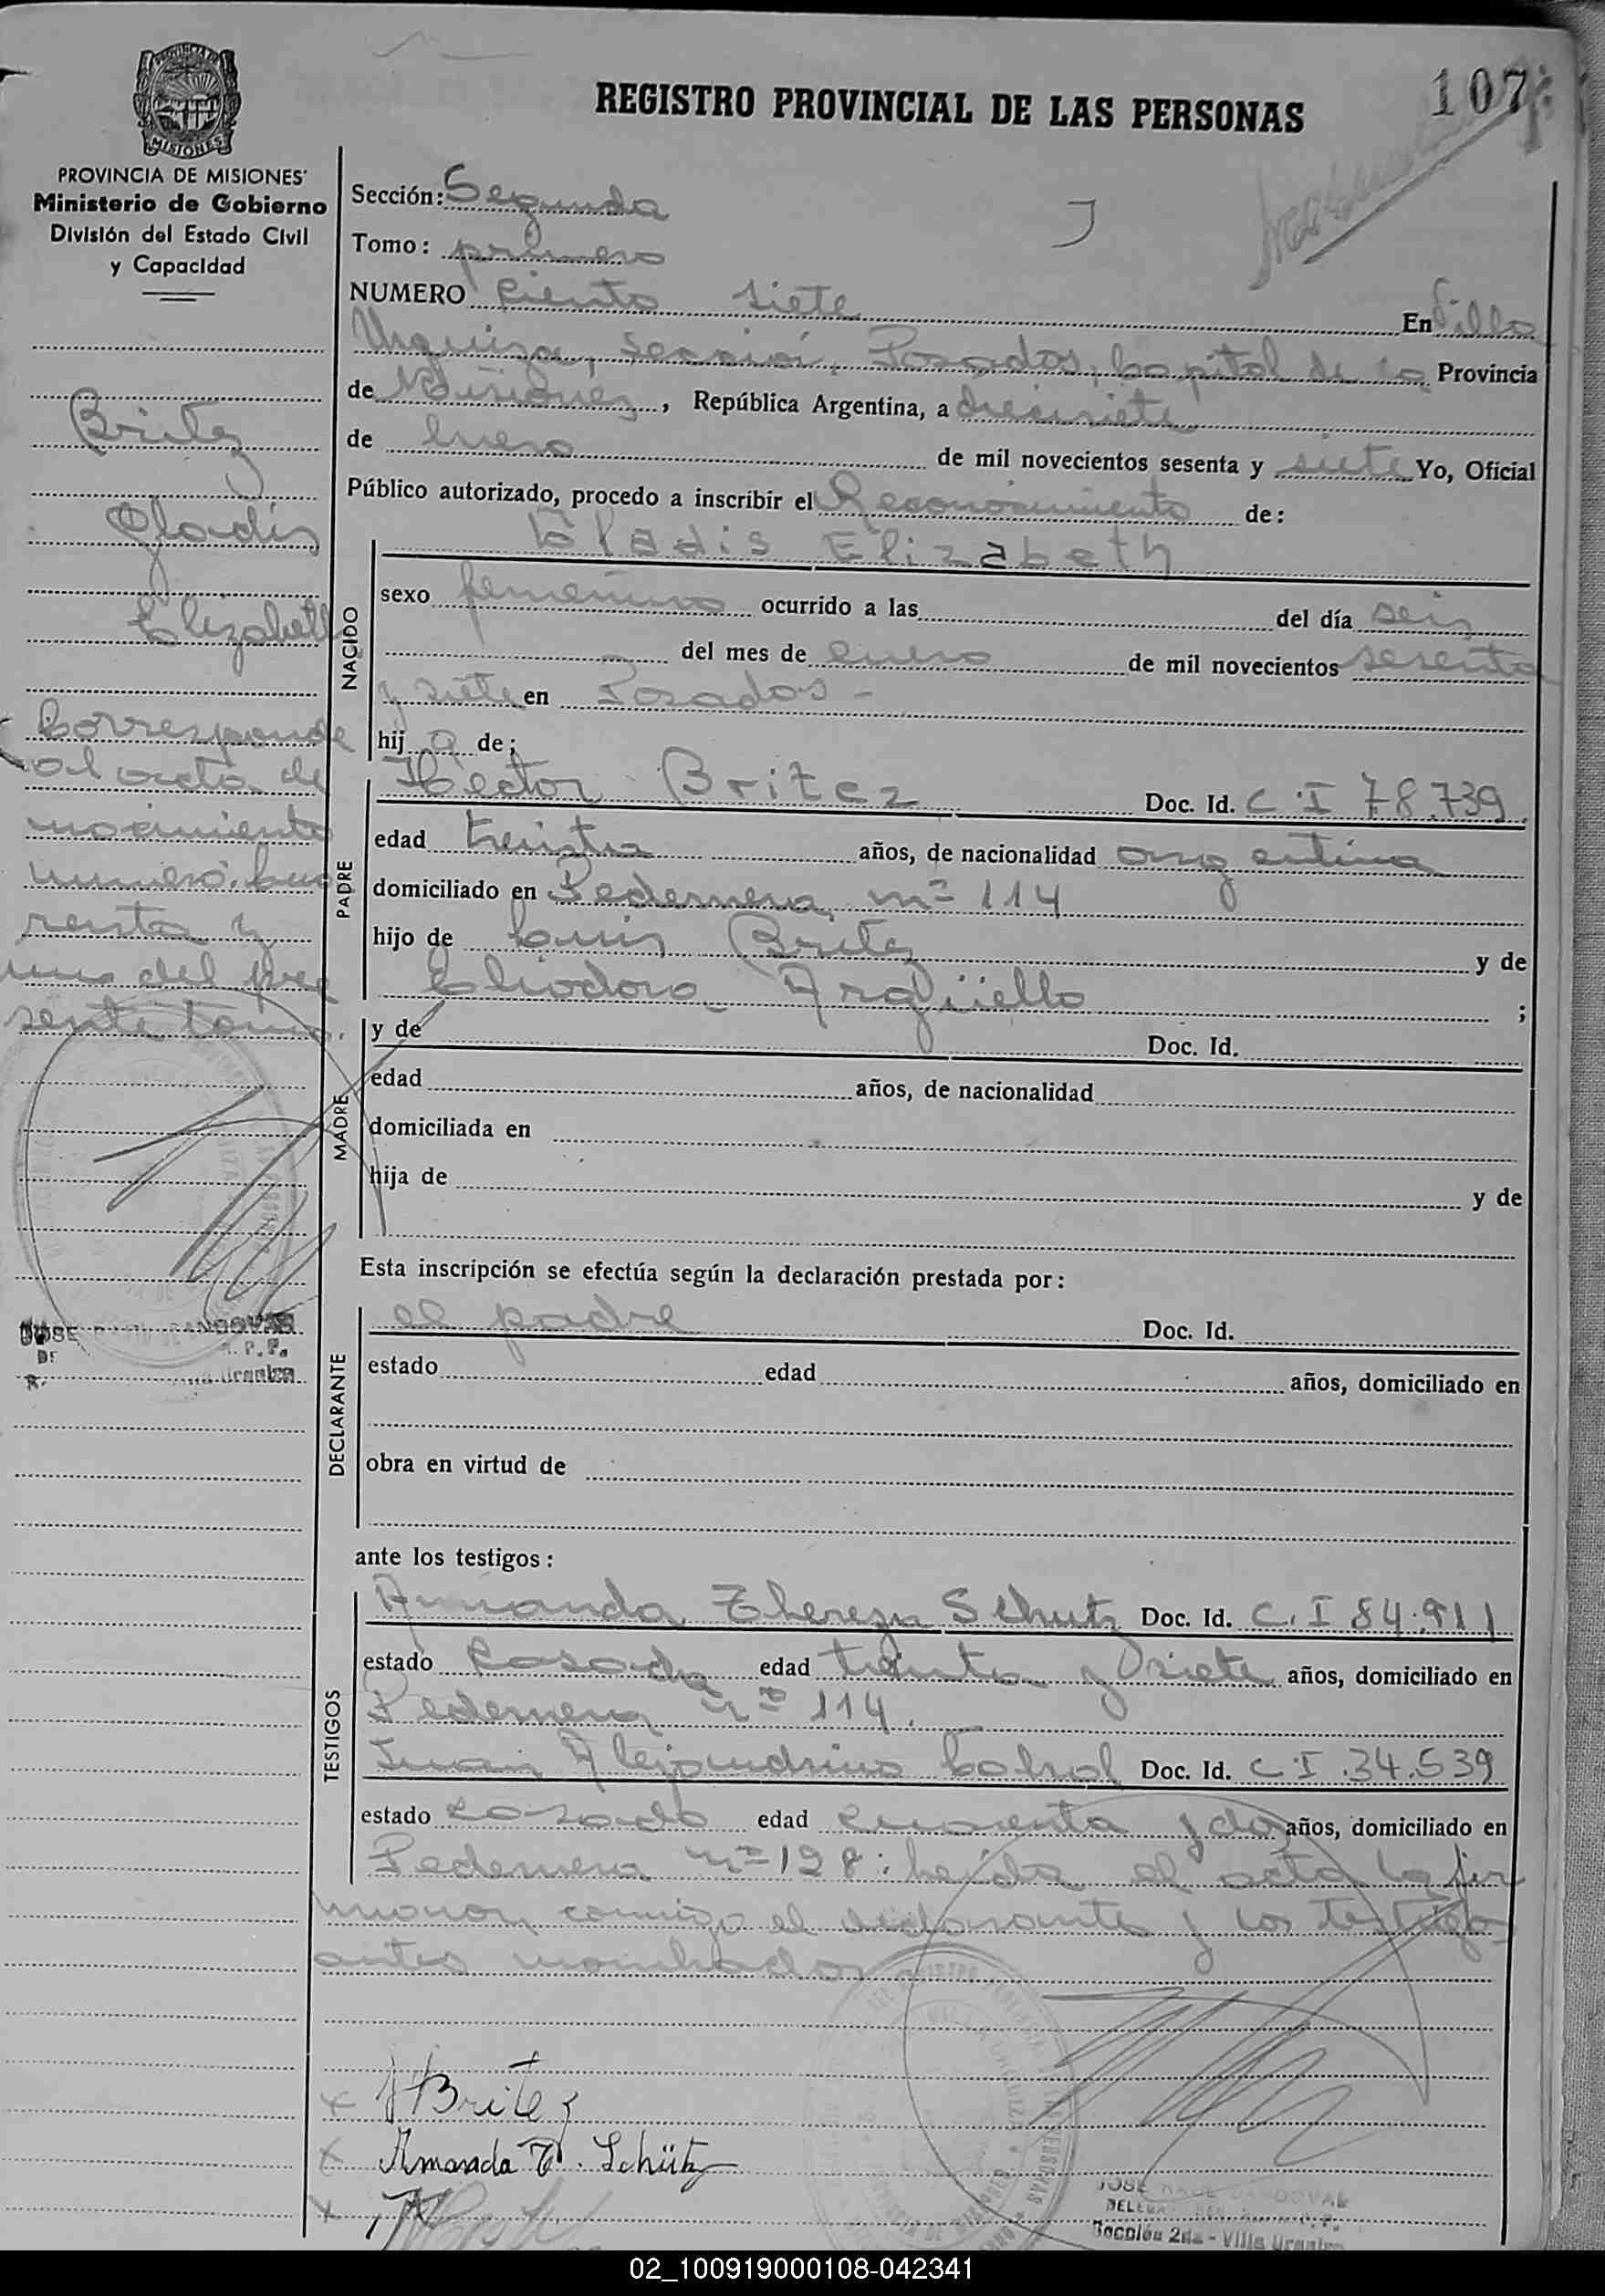 REGISTRO PROVINCIAL DE LAS PERSONAS
107
PROVINCIA DE MISIONES
Ministerio de Gobierno
División del Estado Civil
y Capacidad
Britez
Gladis
Elizabeth
Corresponde
al acta de
nacimiento
numero cua
renta y
uno del pre
sente tomo.
Sección: Segunda
Tomo: primero
NUMERO Ciento siete En Villa
Urquiza, sección, Posadas, Capital de la Provincia
de Misiones, República Argentina, a diecisiete
de Enero de mil novecientos sesenta y siete Yo, Oficial
Público autorizado, procedo a inscribir el Reconocimiento de:
Gladis Elizabeth
NACIDO
sexo femenino ocurrido a las del día seis
del mes de enero de mil novecientos sesenta
y siete en Posadas -
hij a de:
PADRE
Héctor Britez Doc. Id. C.I 78.739
edad treinta años, de nacionalidad argentina
domiciliado en Pedernera nº 114
hijo de Luis Britez y de
Eliodora Argüello ;
MADRE
y de Doc. Id.
edad años, de nacionalidad
domiciliada en
hija de y de
Esta inscripción se efectúa según la declaración prestada por:
DECLARANTE
el padre Doc. Id.
estado edad años, domiciliado en
obra en virtud de
ante los testigos:
TESTIGOS
Amanda Thereza Schutz Doc. Id. C.I 84.911
estado Casada edad treinta y siete años, domiciliado en
Pedernera nº 114.
Juan Alejandrino Cabral Doc. Id. C.I.34.539
estado casado edad cuarenta y dos años, domiciliado en
Pedernera nº 128: Leída el acta la fir
maron conmigo el declarante y los testigos
antes nombrados
x HBritez
x Amanda T. Schütz
x
JOSE RAUL SANDOVAL
Sección 2da - Villa Urquiza
02_100919000108-042341